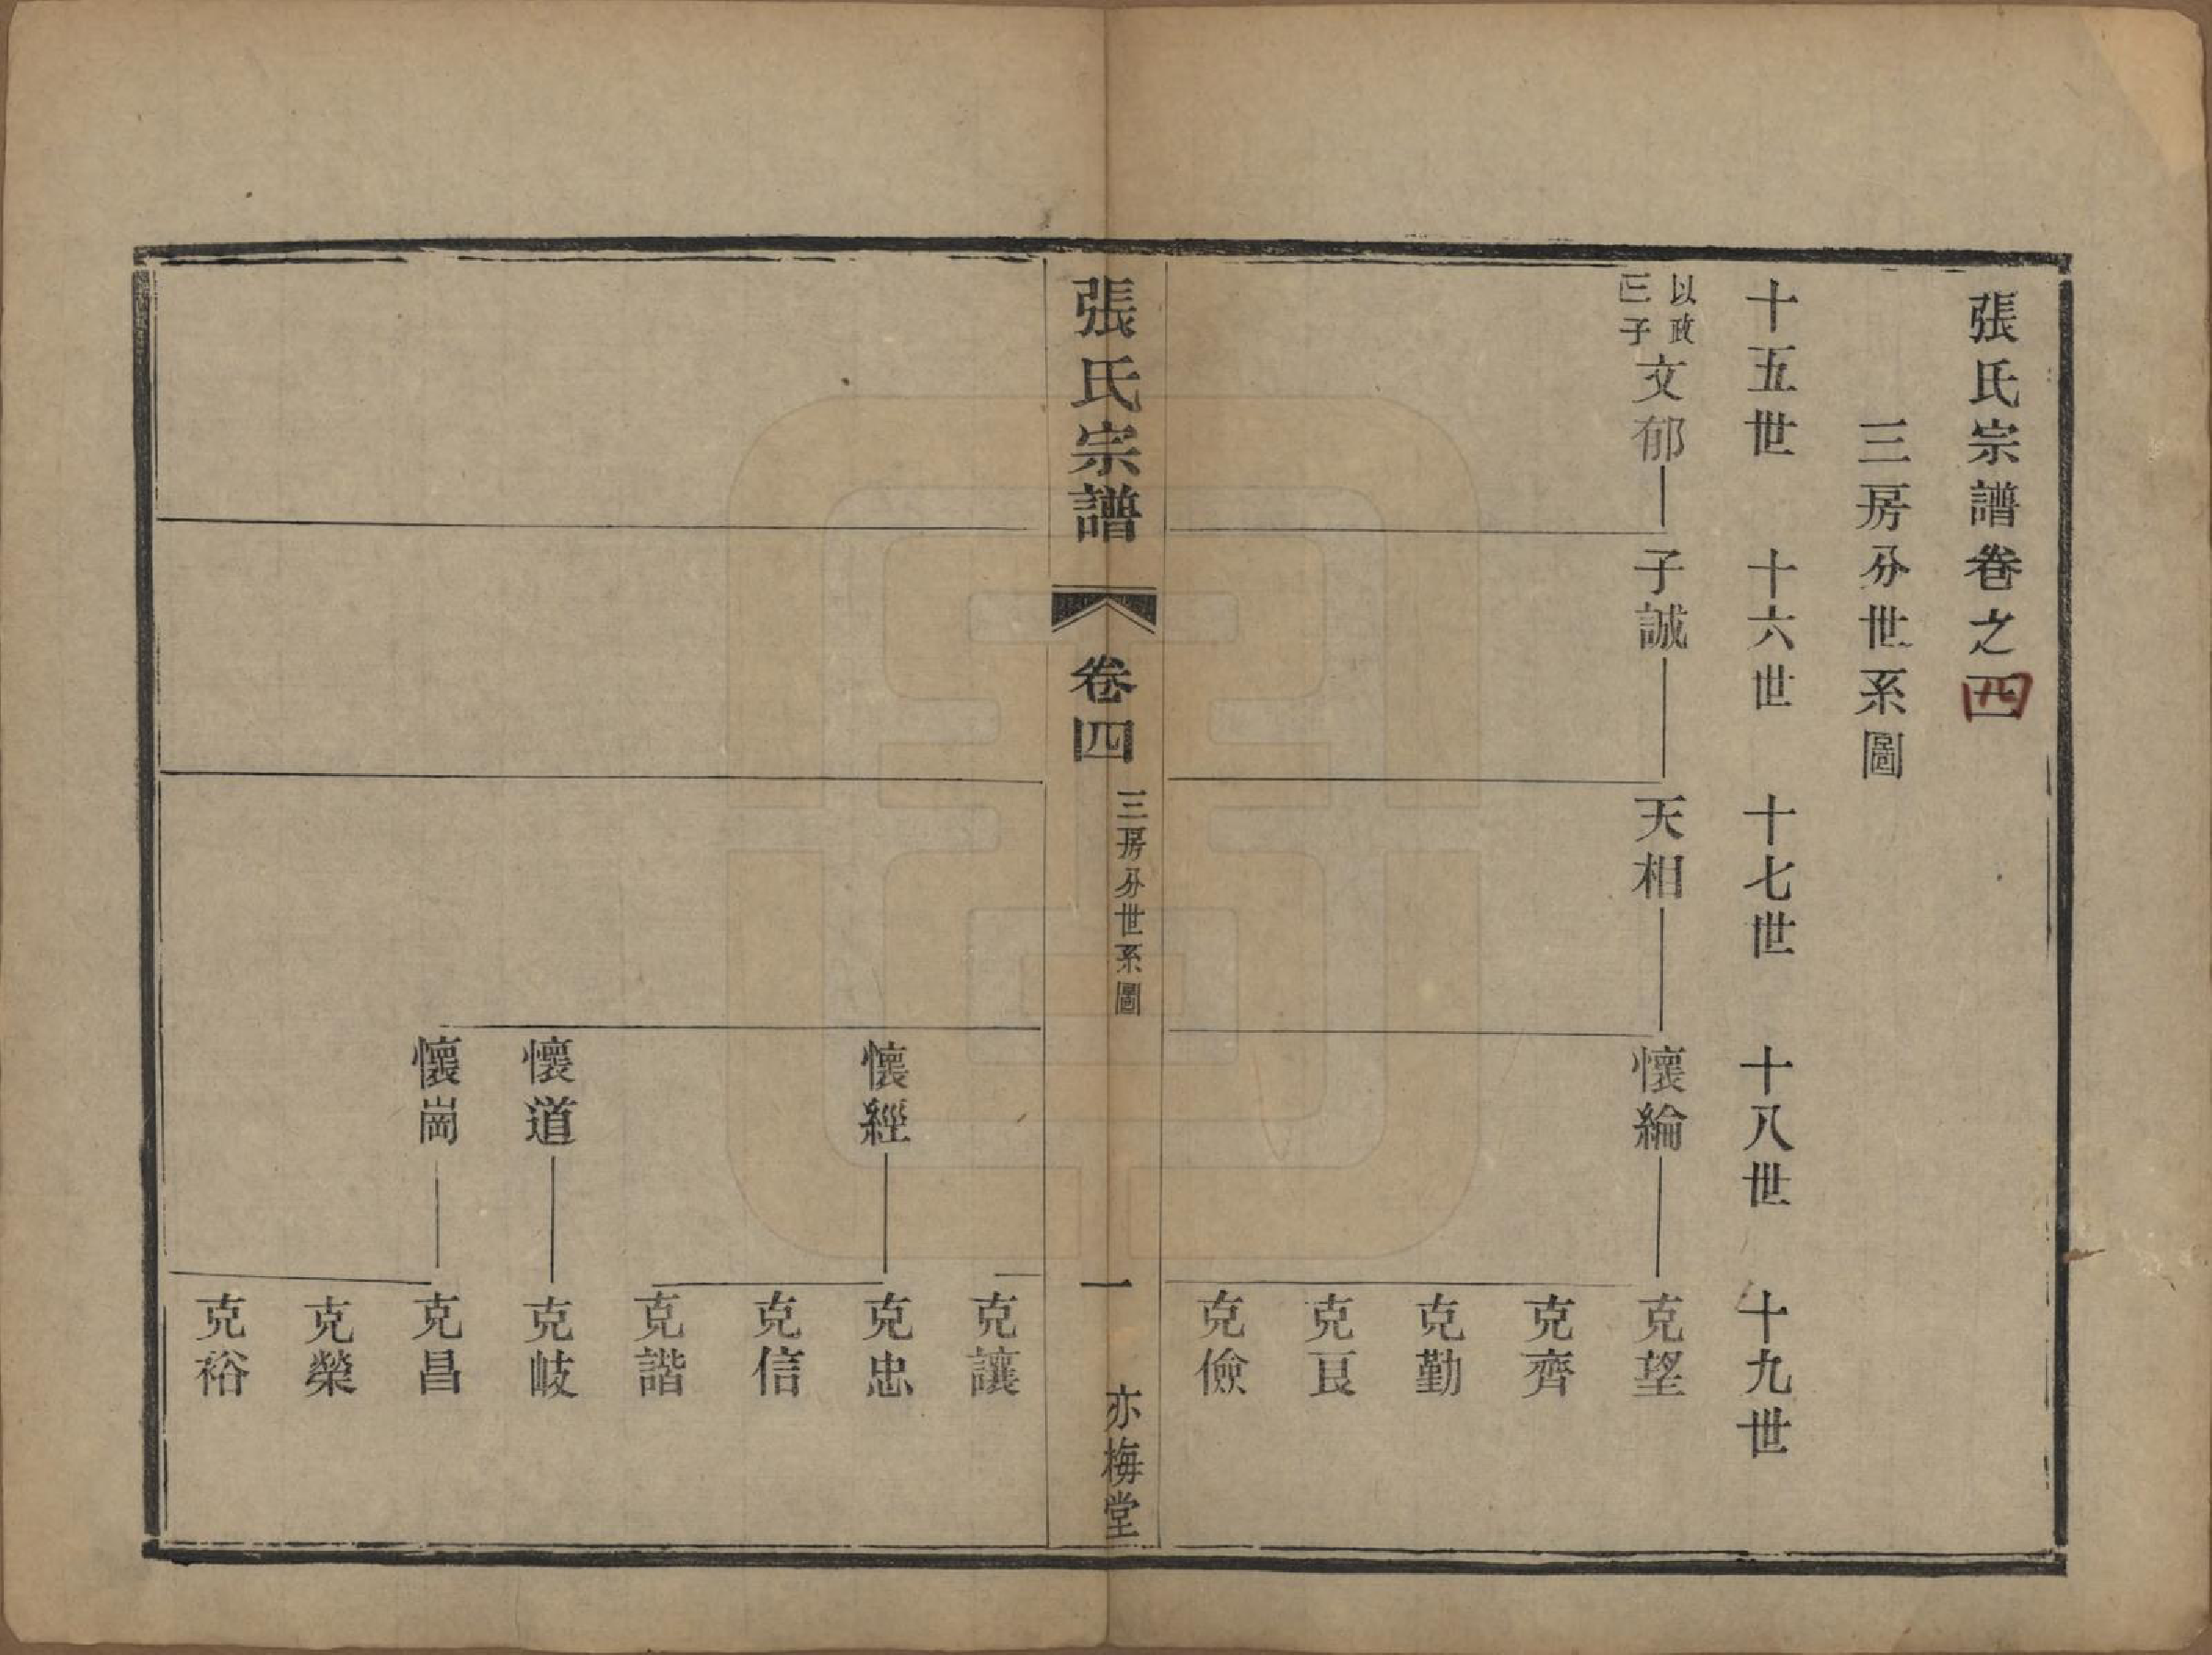 張氏宗譜卷之四
三房分世系圖
十五世 十六世 十七世 十八世 十九世
以政
三子
文郁 子誠 天相 懷綸 克望
克齊
克勤
克艮
克儉
張氏宗譜 卷四 三房分世系圖 一 亦梅堂
克讓
懷經 克忠
克信
克諧
懷道 克岐
懷崗 克昌
克榮
克裕